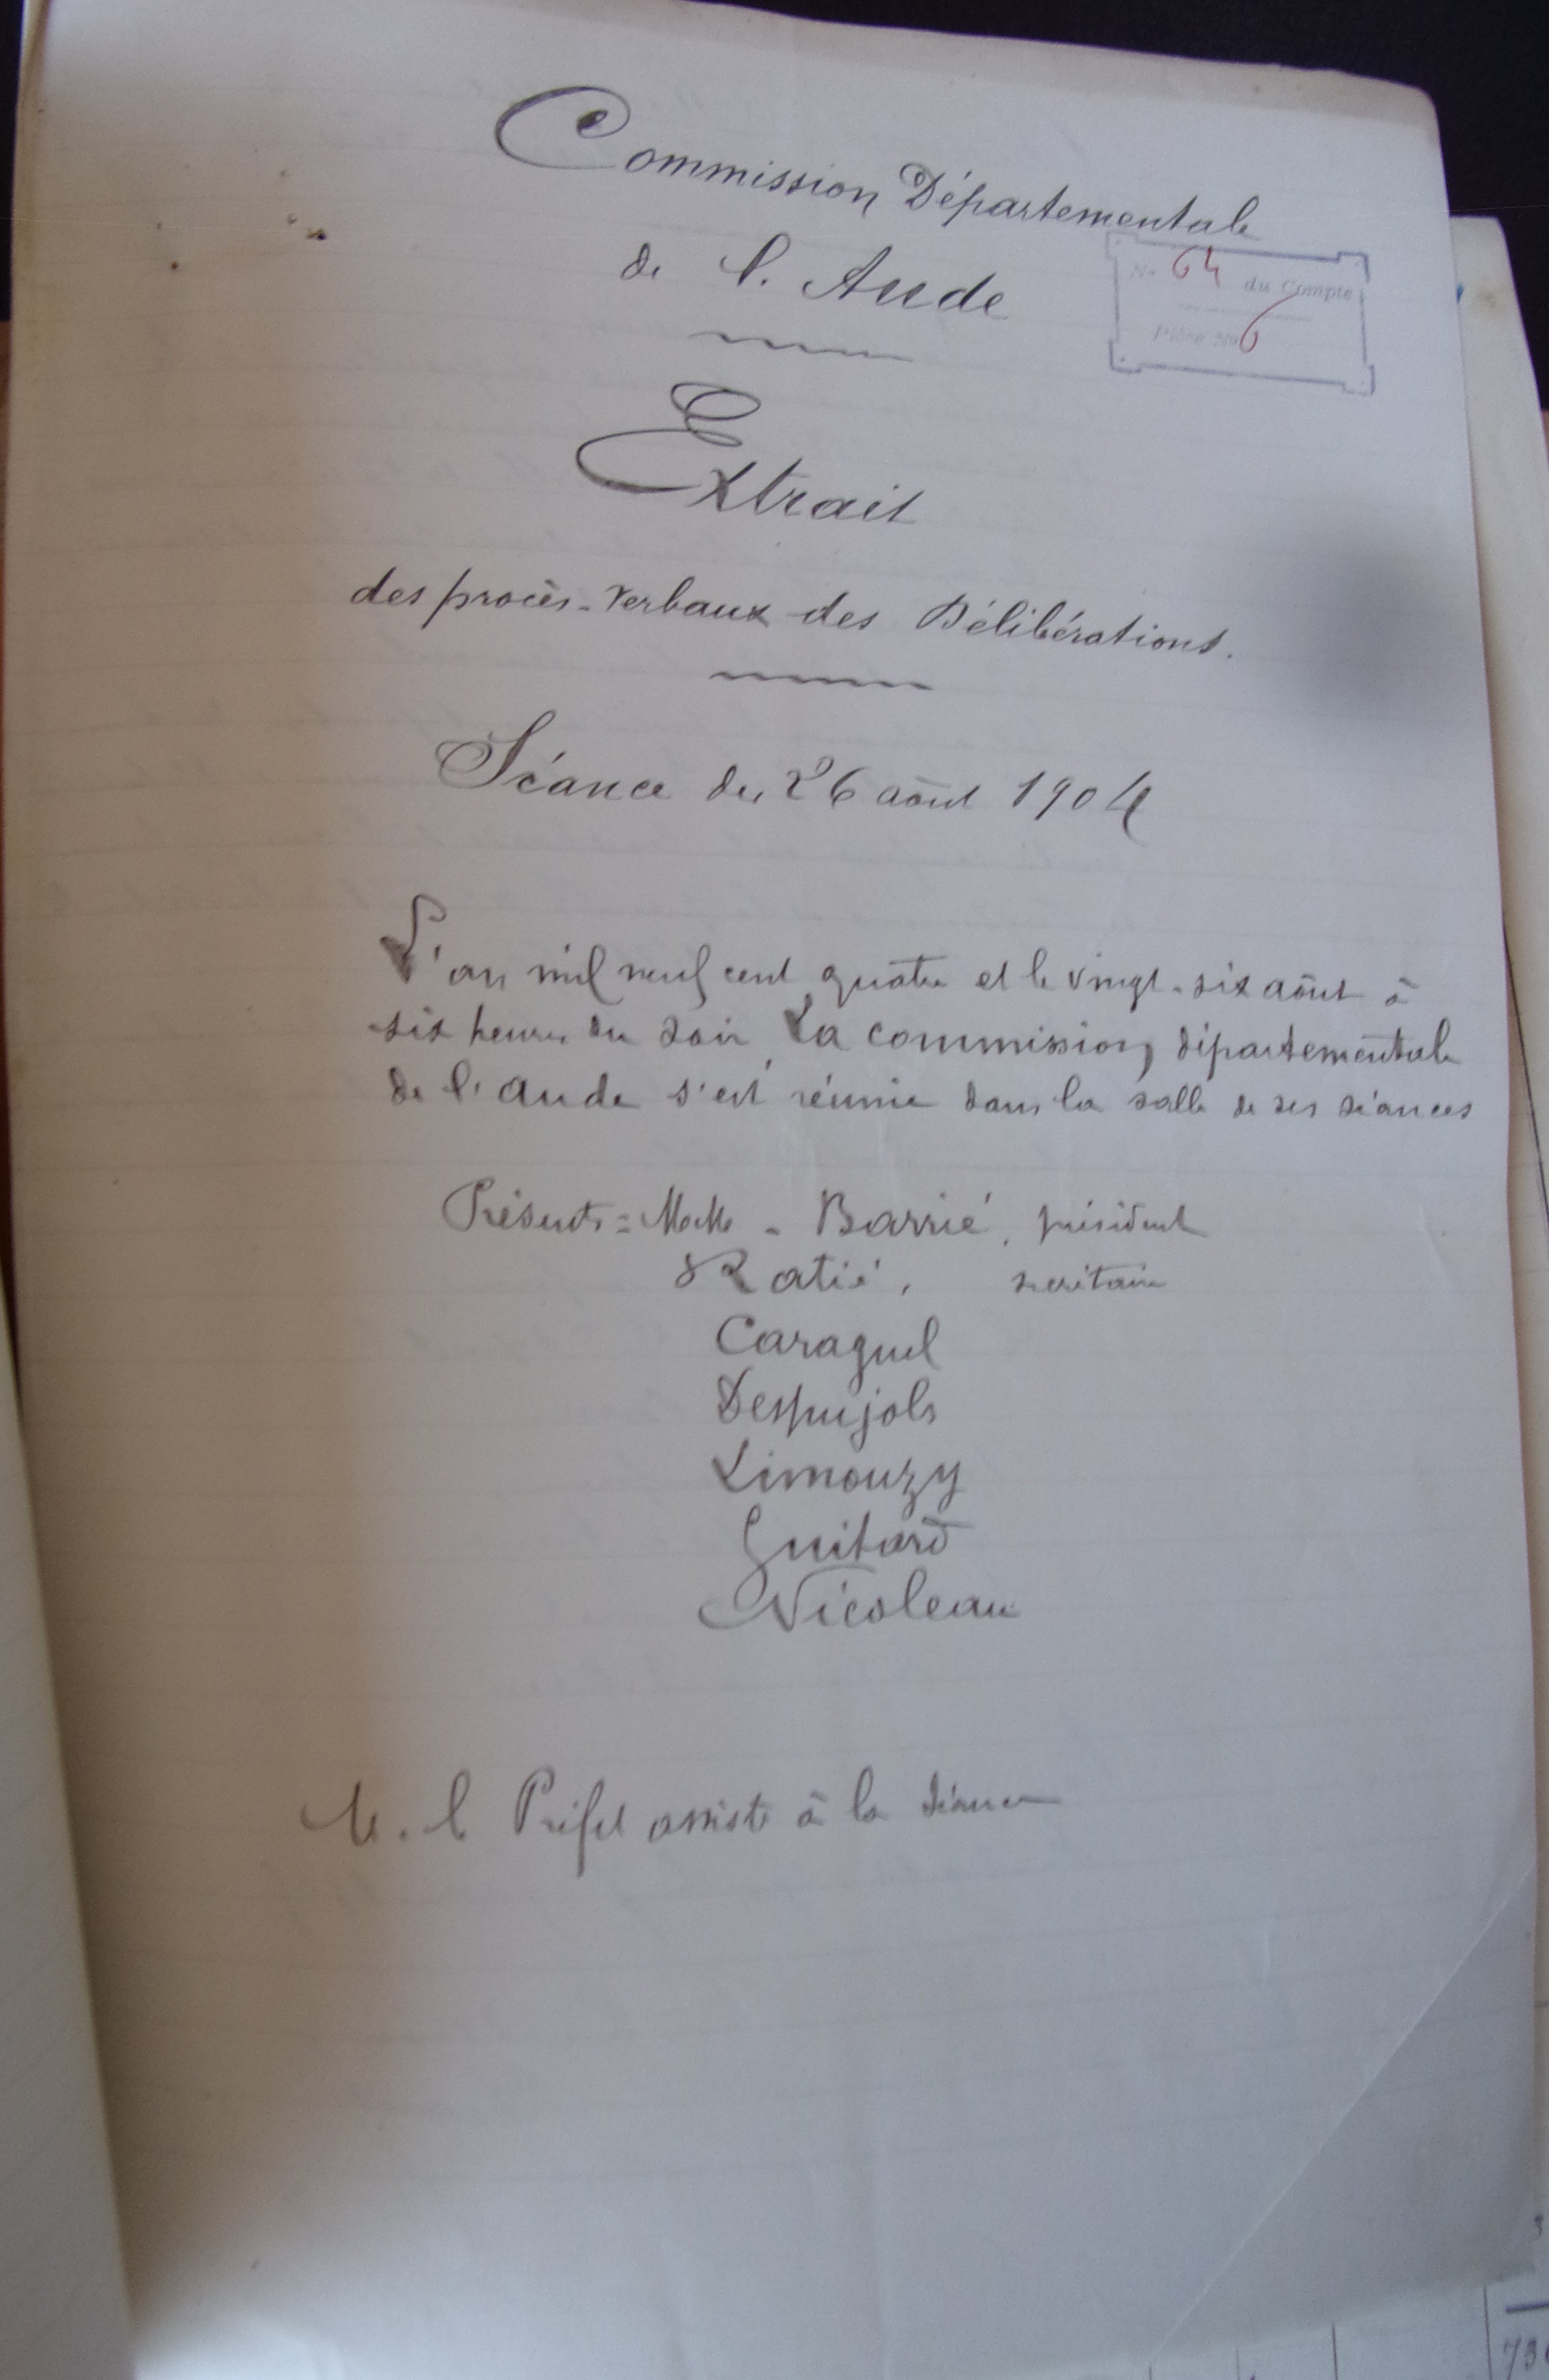 Commission Départementale
de l'Aude
No 64 du Compte
Pièce No 6
Extrait
des procès-verbaux des Délibérations.
Séance du 26 août 1904
L'an mil neuf cent quatre et le vingt-six août à
six heures du soir, La commission départementale
de l'Aude s'est réunie dans la salle de ses séances
Présents = MM. - Barrié, président
Ratié, secrétaire
Caraguel
Despujols
Limouzy
Guitard
Nicoleau
M. le Préfet assiste à la séance